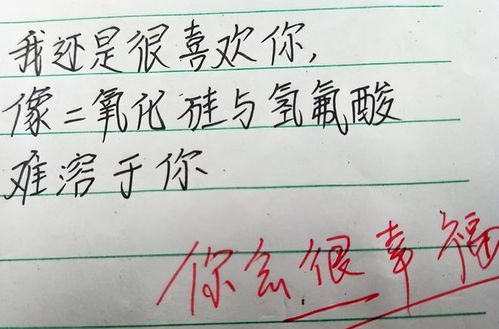 我还是很喜欢你,
像二氧化硅与氢氟酸
难溶于你
你会很幸福